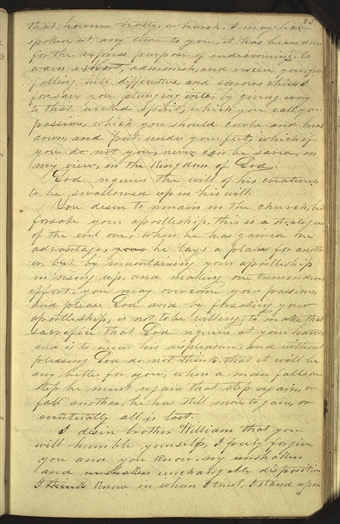 83
that however hasty or harsh I may have
spoken at any time to you, it has been done
for the express purpose of endeavouring to
warn exhort, admonish, and rescue you, from
falling into difficulties, and sorrows which I
foresaw you plunging into, by giving way
to that wicked Spirit, which you call your
passions, which you should curbe and break
down, and put under your feet, which if
you do not you never can be saved, in
my view, in the Kingdom of God.
God requires the will of his creatures,
to be swallowed up in his will.
You desire to remain in the church, but
forsake your apostleship, this is a stratigem
of the evil one, when he has gained one
advantage, he lays a plan for another
but by maintaining your apostleship
in rising up, and making one tremendous
effort, you may overcome your passions,
and please God and by forsaking your
apostleship, is not to be willing, to make that
sacrifice that God requires at your hands
and is to incur his displeasure and without
pleasing God do not think that it will be
any better for you, when a man falls one
step he must regain that step again, or
fall another, he has still more to gain, or
eventually all is lost.
I desire brother William that you
will humble yourself, I freely forgive
you and you know, my unshaken
and unshaken unchangable disposition
I think know in whom I trust, I stand upon